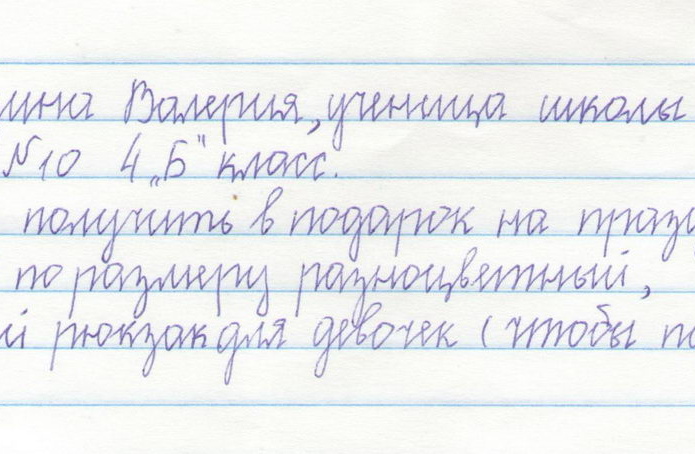 мина Валерия, ученица школы
№10 4 „Б" класс.
получить в подарок на празд
по размеру разноцветный,
й рюкзак для девочек (чтобы по